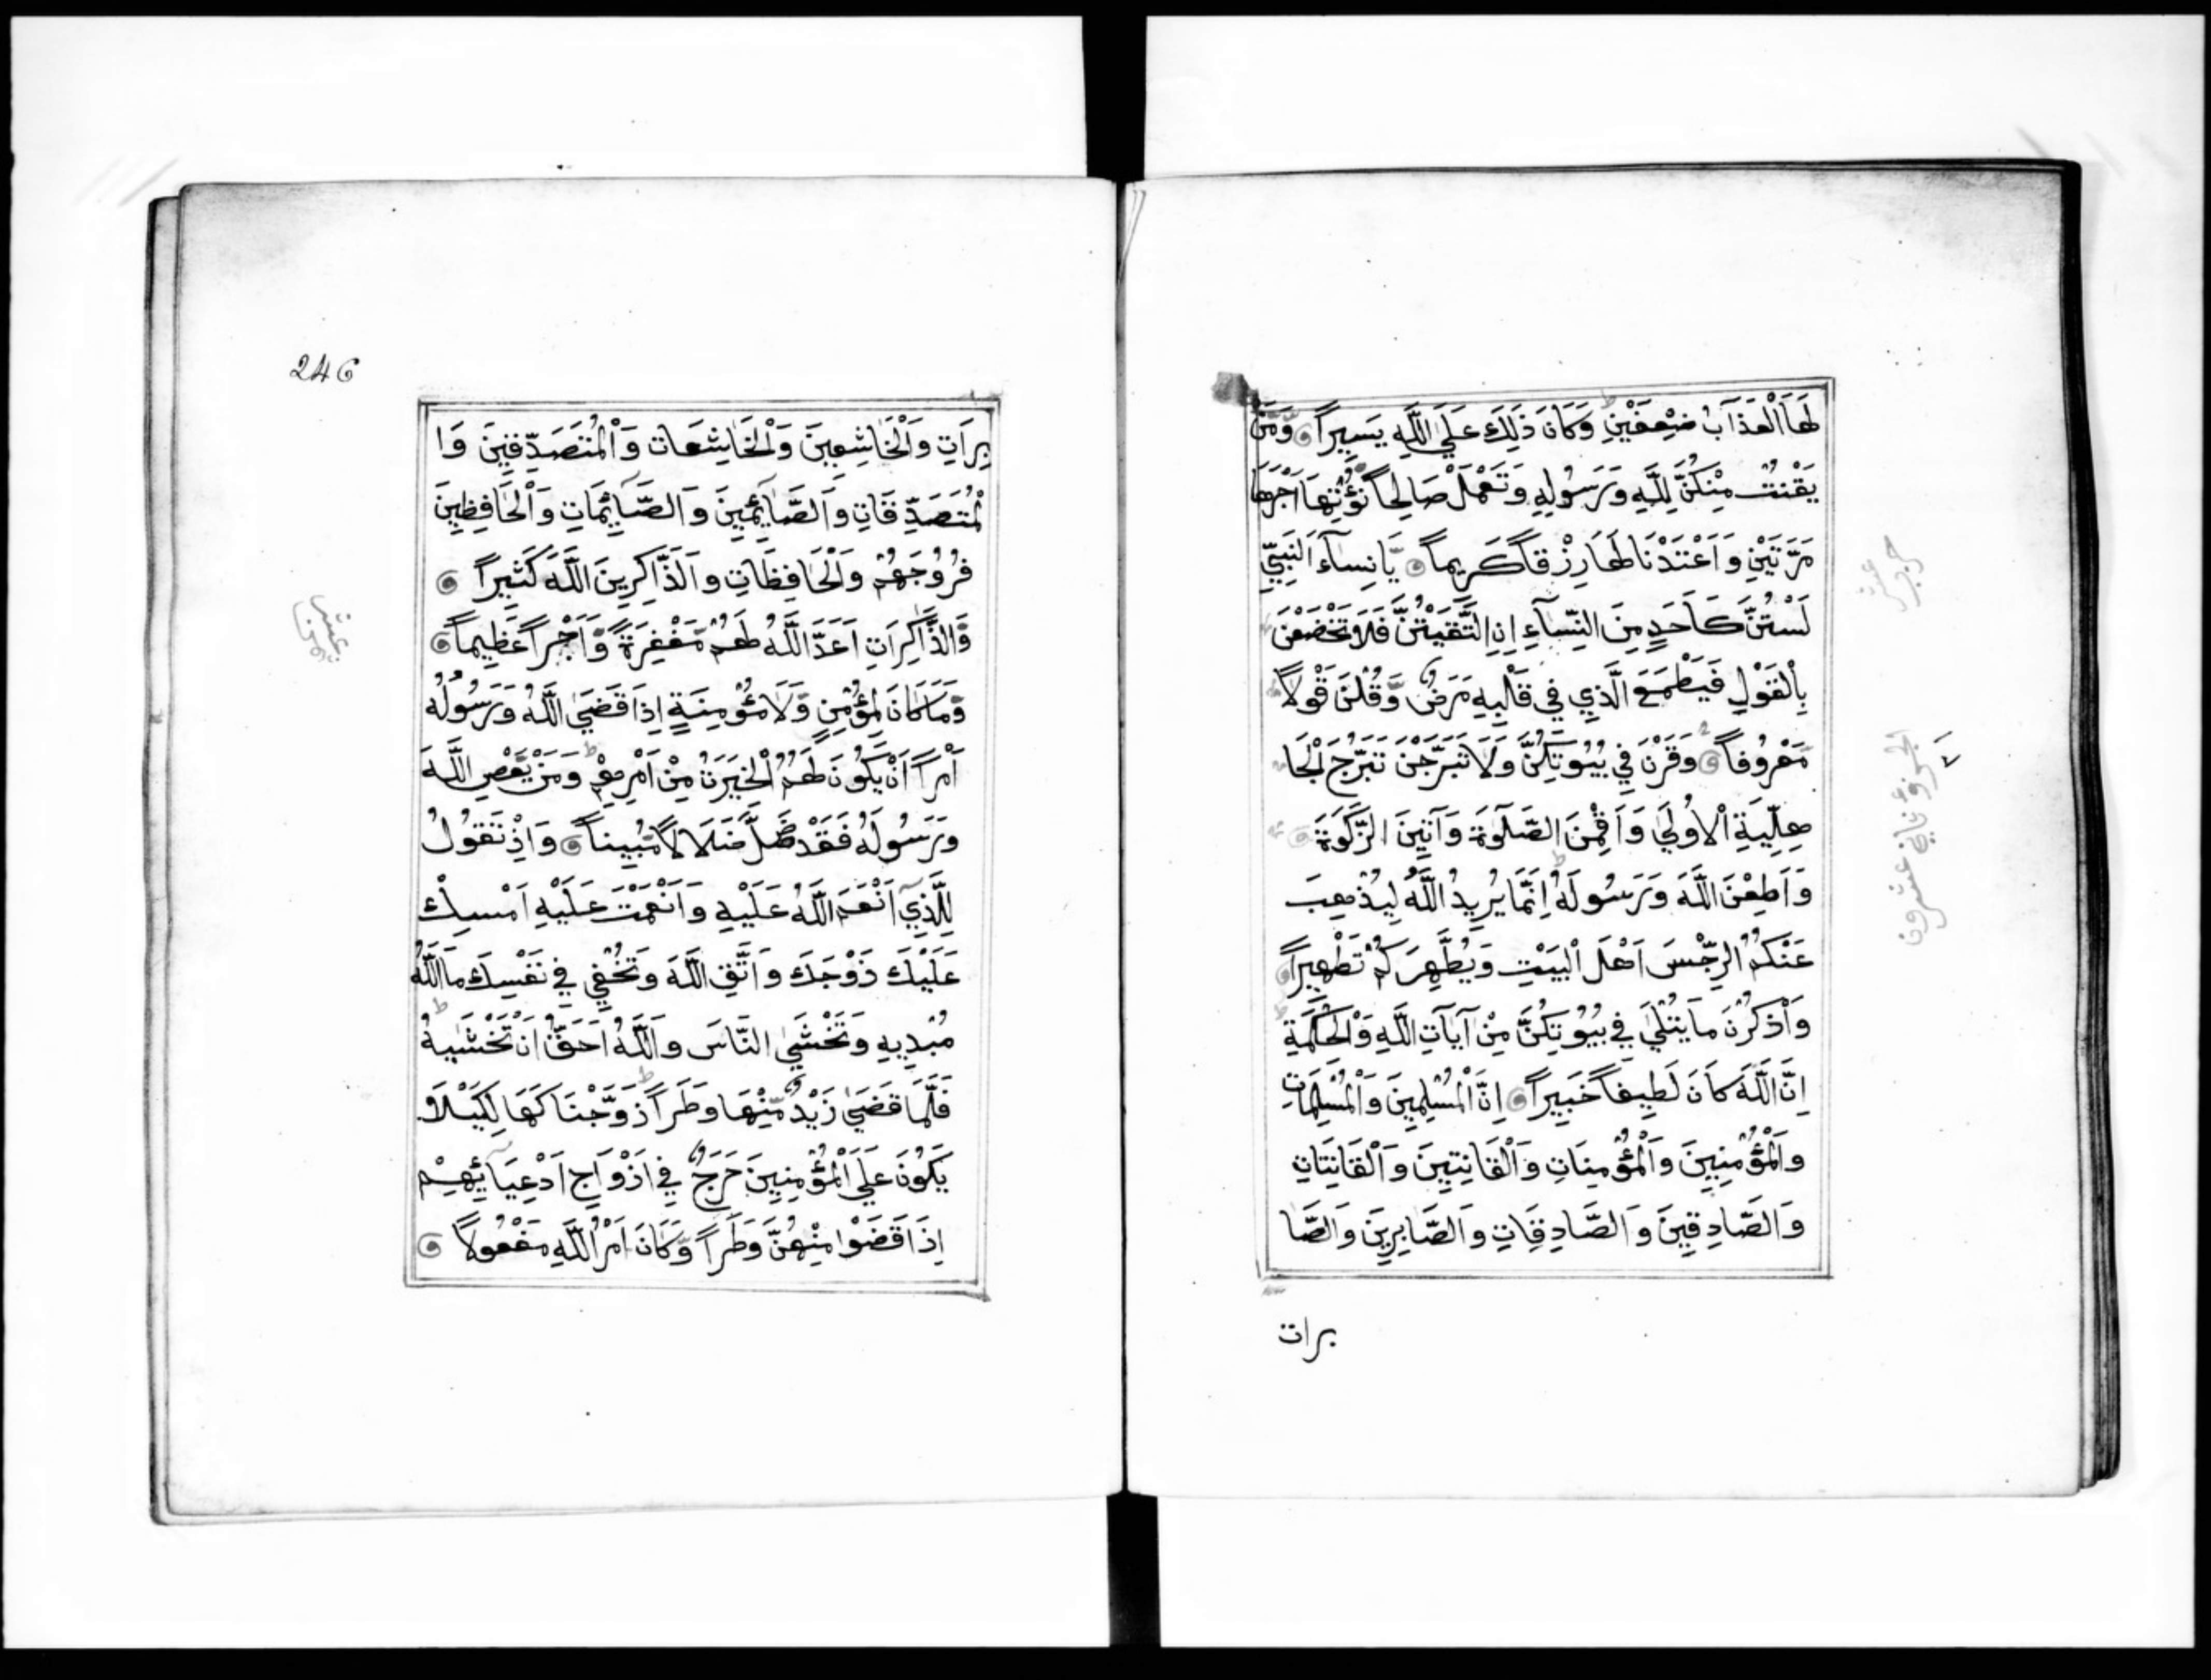 لَهَا الْعَذَابُ ضِعْفَيْنِ ط وَكَانَ ذَلِكَ عَلَي اللَّهِ يَسِيراً وَّمَنْ
يَقْنُتْ مِنْكُنَّ لِلَّهِ وَرَسُولِهِ وَتَعْمَلْ صَالِحاً نُؤْتِهَا اَجْرَهَا
مَرَّتَيْنِ وَاَعْتَدْنَا لَهَا رِزْقاً كَرِيماً يَّا نِسَآءَ النَبِيِّ
لَسْتُنَّ كَاَحَدٍ مِنَ النِّسَآءِ اِنِ اتَّقَيْتُنَّ فَلَا تَخْضَعْنَ
بِالْقَوْلِ فَيَطْمَعَ الَّذِي فِي قَلْبِهِ مَرَضٌ وَّقُلْنَ قَوْلاً
مَّعْرُوفاً وَقَرْنَ فِي بُيُوتِكُنَّ وَلَا تَبَرَّجْنَ تَبَرُّجَ الْجَا
هِلِيَّةِ الْاُولَي وَاَقِمْنَ الصَّلَوةَ وَآتِينَ الزَّكَوةَ
وَاَطِعْنَ اللَّهَ وَرَسُولَهُ ط اِنَّمَا يُرِيدُ اللَّهُ لِيُذْهِبَ
عَنْكُمُ الرِّجْسَ اَهْلَ الْبَيْتِ وَيُطَّهِرَكُمْ تَطْهِيراً
وَاذْكُرْنَ مَا يُتْلَي فِي بُيُوتِكُنَّ مِنْ آيَاتِ اللَّهِ وَالْحِكْمَةِ ط
اِنَّ اللَّهَ كَانَ لَطِيفاً خَبِيراً اِنَّ الْمُسْلِمِينَ وَالْمُسْلِمَاتِ
وَالْمُؤْمِنِينَ وَالْمُؤْمِنَاتِ وَالْقَانِتِينَ وَالْقَانِتَاتِ
وَالصَّادِقِينَ وَالصَّادِقَاتِ وَالصَّابِرِينَ وَالصَّا
برات
حزب
عشر
الجزؤ ثاني عشرون
246
بِرَاتِ وَالْخَاشِعِينَ وَالْخَاشِعَات وَالْمُتَصَدِّقِينَ وَا
لْمُتَصَدِّقَاتِ وَالصَّآئِمِينَ وَالصَّآئِمَاتِ وَالْحَافِظِينَ
فُرُوجَهُمْ وَالْحَافِظَاتِ وَالَذَّاكِرِينَ اللَّهَ كَثِيراً
وَّالذَّاكِرَاتِ اَعَدَّ اللَّهُ لَهُمْ مَّغْفِرَةً وَّاَجْراً عَظِيماً
وَّمَا كَانَ لِمُؤْمِنٍ وَّلَا مُؤْمِنَةٍ اِذَا قَضَي اللَّهُ وَرَسُولُهُ
اَمْراً اَنْ يَّكُونَ لَهُمُ الْخِيَرَةُ مِنْ اَمْرِهِمْ ط وَمَنْ يَّعْصِ اللَّهَ
وَرَسُولَهُ فَقَدْ ضَلَّ ضَلَالاً مُّبِيناً وَاِذْ تَقُولُ
لِلَّذِي اَنْعَمَ اللَّهُ عَلَيْهِ وَاَنْعَمْتَ عَلَيْهِ اَمْسِكْ
عَلَيْكَ زَوْجَكَ وَاتَّقِ اللَّهَ وَتُخْفِي فِي نَفْسِكَ مَا اللَّهُ
مُبْدِيهِ وَتَخْشَي النَّاسَ وَاللَّهُ اَحَقُّ اَنْ تَخْشَيهُ ط
فَلَمَّا قَضَي زَيْدٌ مِّنْهَا وَطَراً ط زَوَّجْنَا كَهَا لِكَيْلَا
يَكُونَ عَلَي الْمُؤْمِنِينَ حَرَجٌ فِي اَزْوَاجِ اَدْعِيَآئِهِمْ
اِذَا قَضَوْا مِنْهُنَّ وَطَراً وَّكَانَ اَمْرُ اللَّهِ مَفْعُولاً